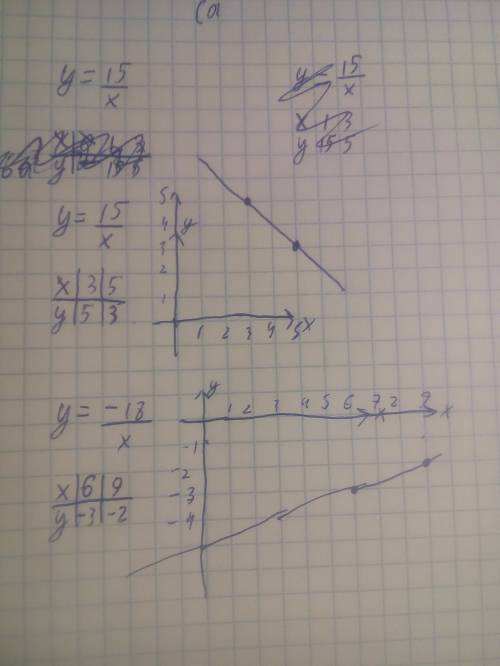 y = 15/x
y = 15/x
x 1 3
y 15 5
y = 15/x
x | 3 | 5
y | 5 | 3
5
4 y
3
2
1
1 2 3 4 5 x
y = -18/x
x | 6 | 9
y | -3 | -2
y
1 2 3 4 5 6 7 x 2 9 x
-1
-2
-3
-4